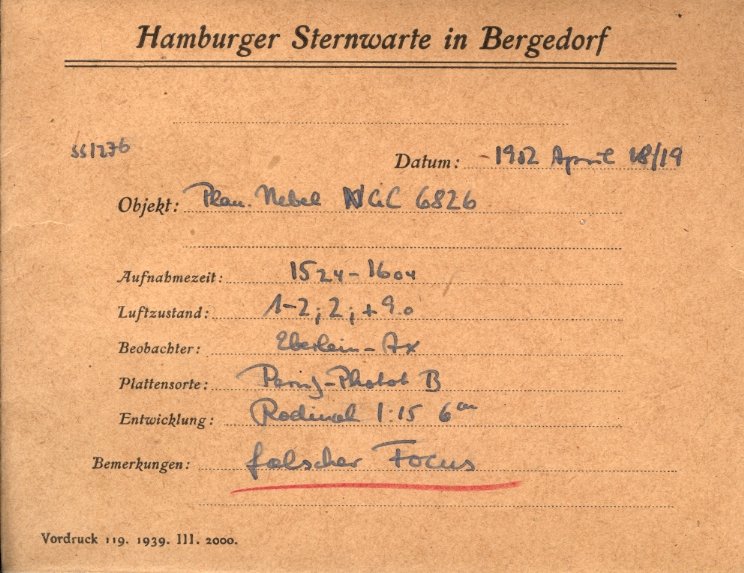 Hamburger Sternwarte in Bergedorf
SS1276
Datum: 1952 April 18/19
Objekt: Plan. Nebel NGC 6826
Aufnahmezeit: 1524-1604
Luftzustand: 1-2; 2; +9.0
Beobachter: Eberlein-Ax
Plattensorte: B
Entwicklung: Rodinal 1:15 6m
Bemerkungen: falscher Focus
Vordruck 119. 1939. III. 2000.